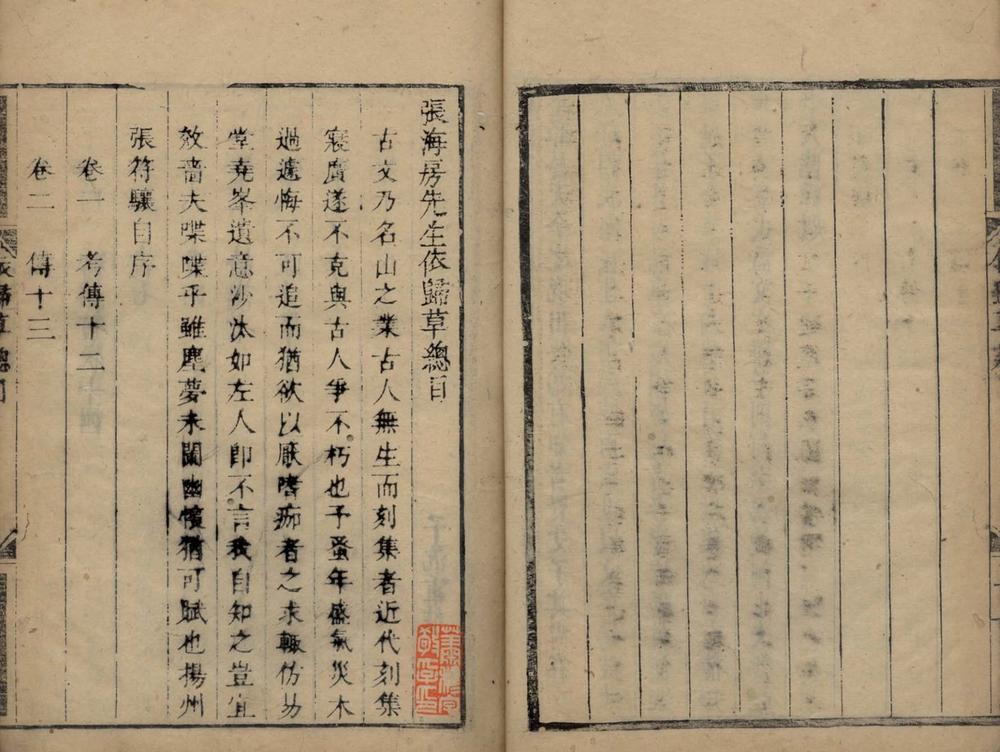 張海房先生依歸草總目
古文乃名山之業古人無生而刻集者近代刻集
寖廣遂不克與古人爭不朽也予蚤年盛氣災木
過遽悔不可追而猶欲以厭嗜痂者之求輙仿幼
堂堯峯遺意沙汰如左人卽不言我自知之豈宜
效嗇夫喋喋乎雖塵夢未闌幽懷猶可賦也揚州
張符驤自序
卷一　考傳十二
卷二　傳十三
依歸草總目